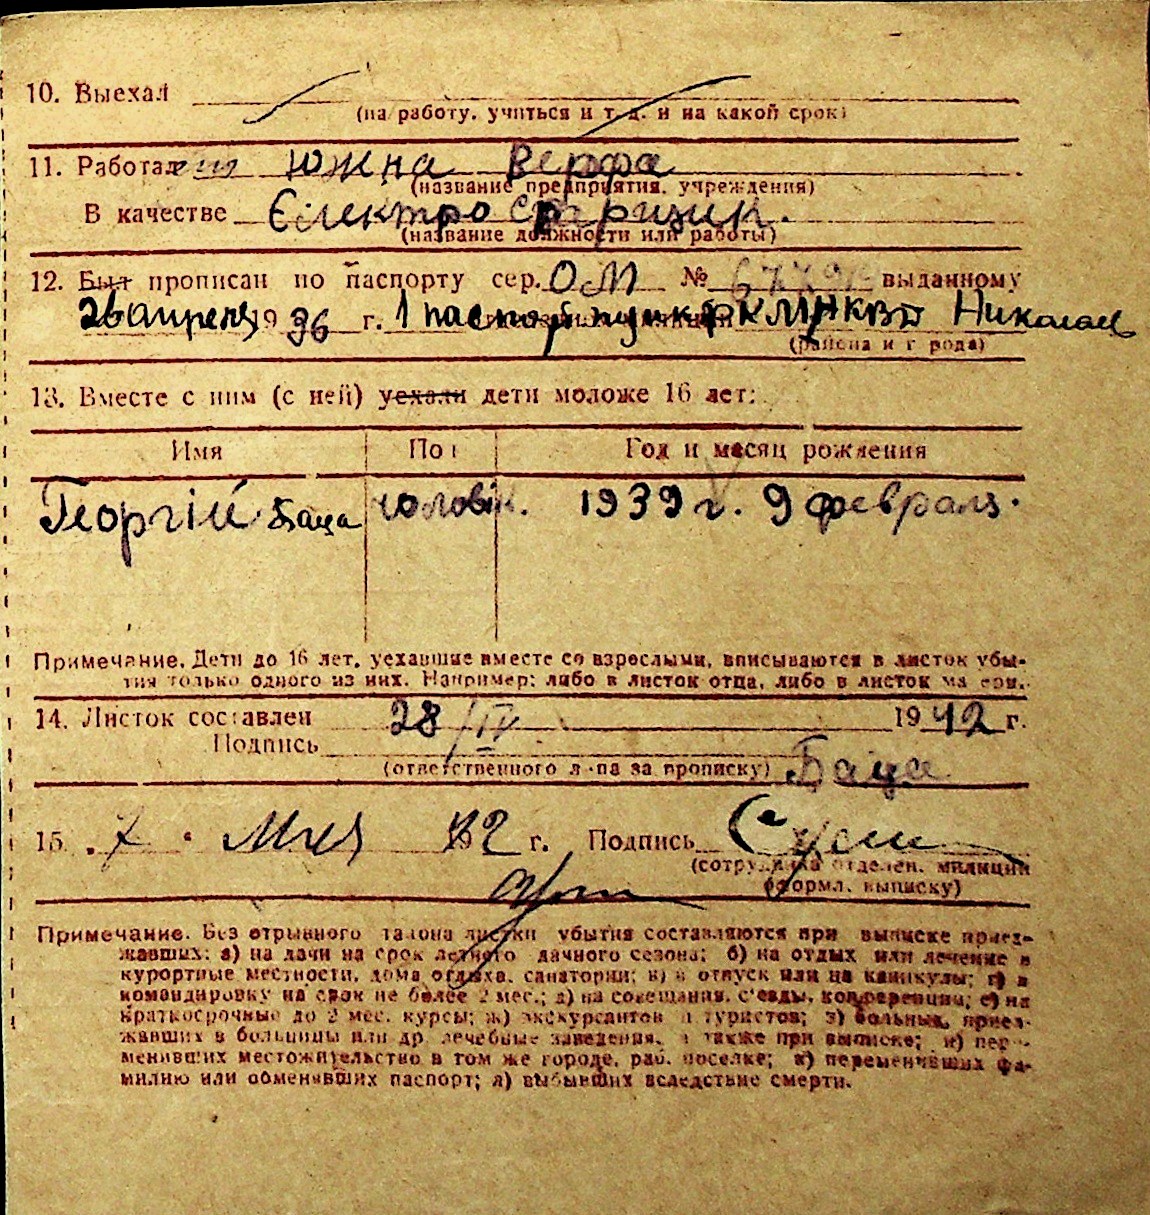 10. Выехал
(на работу, учиться и т. д. и на какой срок)
11. Работает Южна Верфа
(название предприятия, учреждения)
В качестве Єлектро
(название должности или работы)
12. Был прописан по паспорту сер. ОМ № выданному
26 апреля 1936 г. 1 паспорт пункт РКМ НКВД Николаев
(района и города)
13. Вместе с ним (с ней) уехали дети моложе 16 лет:
Имя Пол Год и месяц рождения
Георгій Баца чоловік. 1939 г. 9 февраля.
Примечание. Дети до 16 лет, уехавшие вместе со взрослыми, вписываются в листок убы-
тия только одного из них. Например: либо в листок отца, либо в листок матери.
14. Листок составлен 28/IV 1942 г.
Подпись
(ответственного л-ца за прописку) Баца
15. 7 Мая 42 г. Подпись
(сотрудника отделен. милиции
оформл. выписку)
Примечание. Без отрывного талона листки убытия составляются при выписке приез-
жавших: а) на дачи на срок летнего дачного сезона; б) на отдых или лечение в
курортные местности, дома отдыха, санатории; в) в отпуск или на каникулы; г) в
командировку на срок не более 2 мес.; д) на совещания, с'езды, конференции; е) на
краткосрочные до 2 мес. курсы; ж) экскурсантов и туристов; з) больных, приез-
жавших в больницы или др. лечебные заведения, а также при выписке; и) пере-
менивших местожительство в том же городе, раб. поселке; к) переменивших фа-
милию или обменявших паспорт; л) выбывших вследствие смерти.